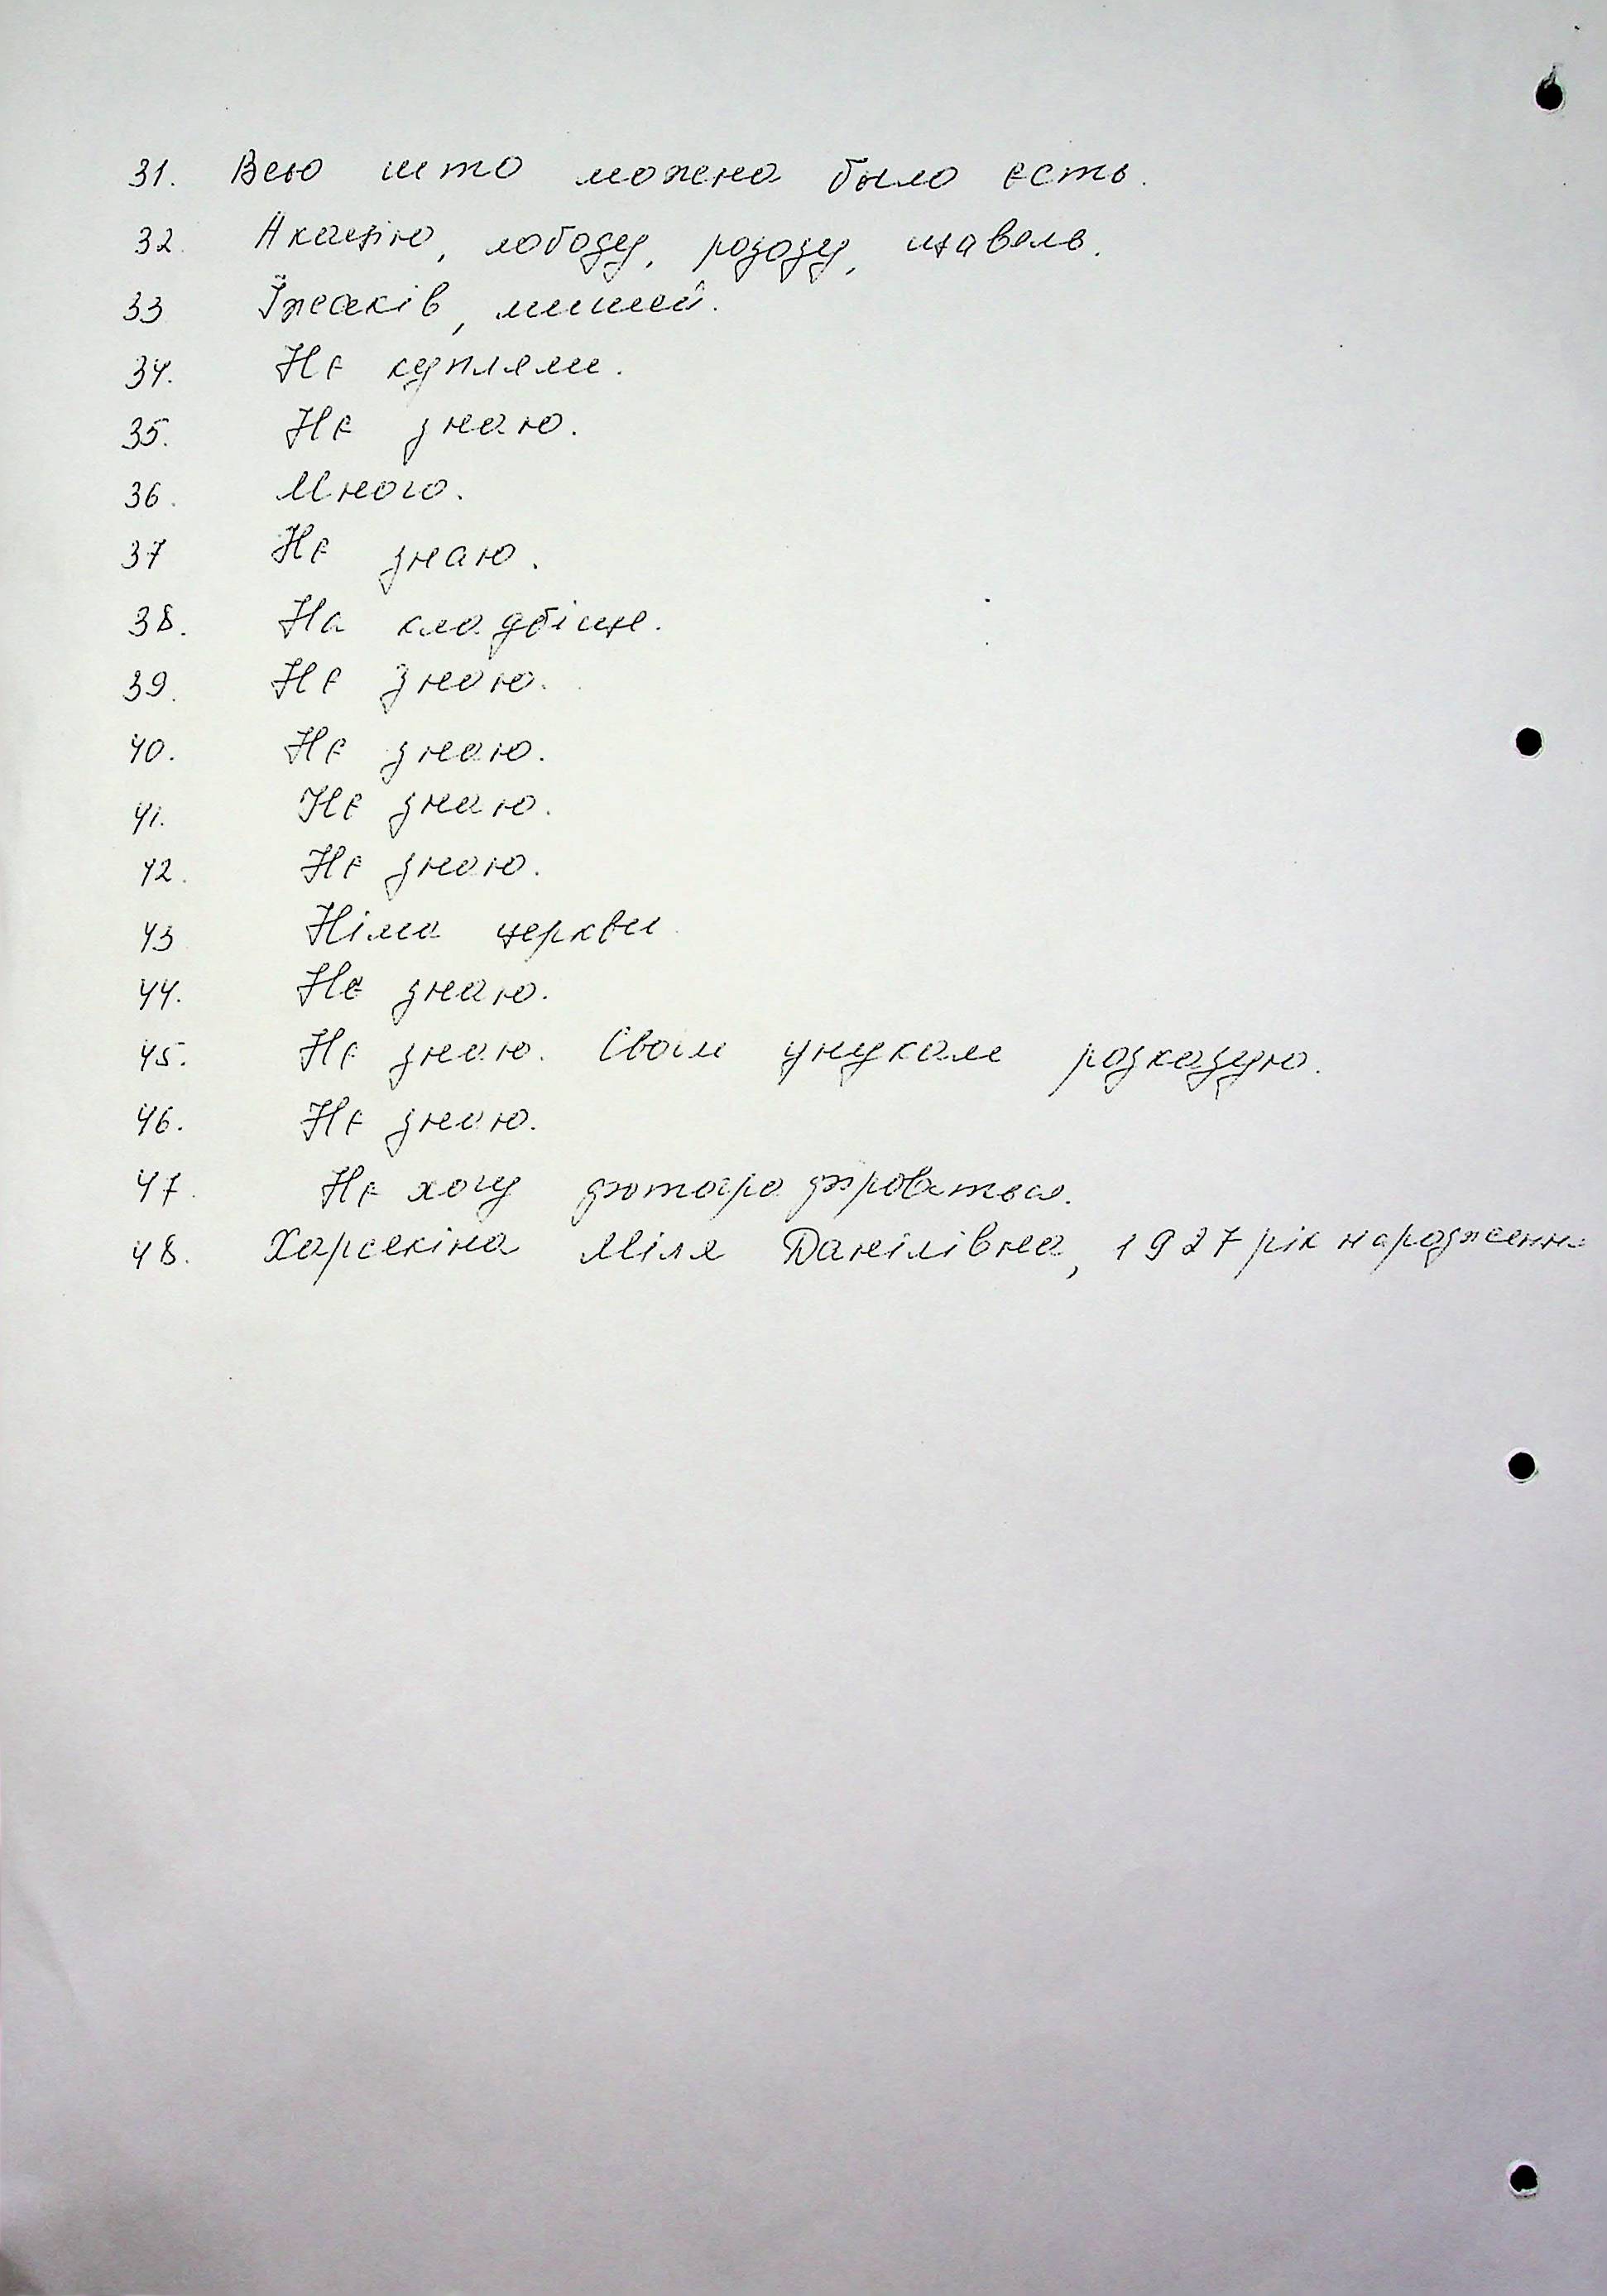 31. Всьо што можна было єсть.
32. Акацію, лободу, розозу, щавель.
33 Їжаків, мишей.
34. Нє купляли.
35. Нє знаю.
36. Много.
37 Нє знаю.
38. На кладбіще.
39. Нє знаю.
40. Нє знаю.
41. Нє знаю.
42. Нє знаю.
43 Німа церкви
44. Нє знаю.
45. Нє знаю. Своїм унукам розказую.
46. Нє знаю.
47. Нє хочу фотографіроваться.
48. Міля Данілівна, 1927 рік народження